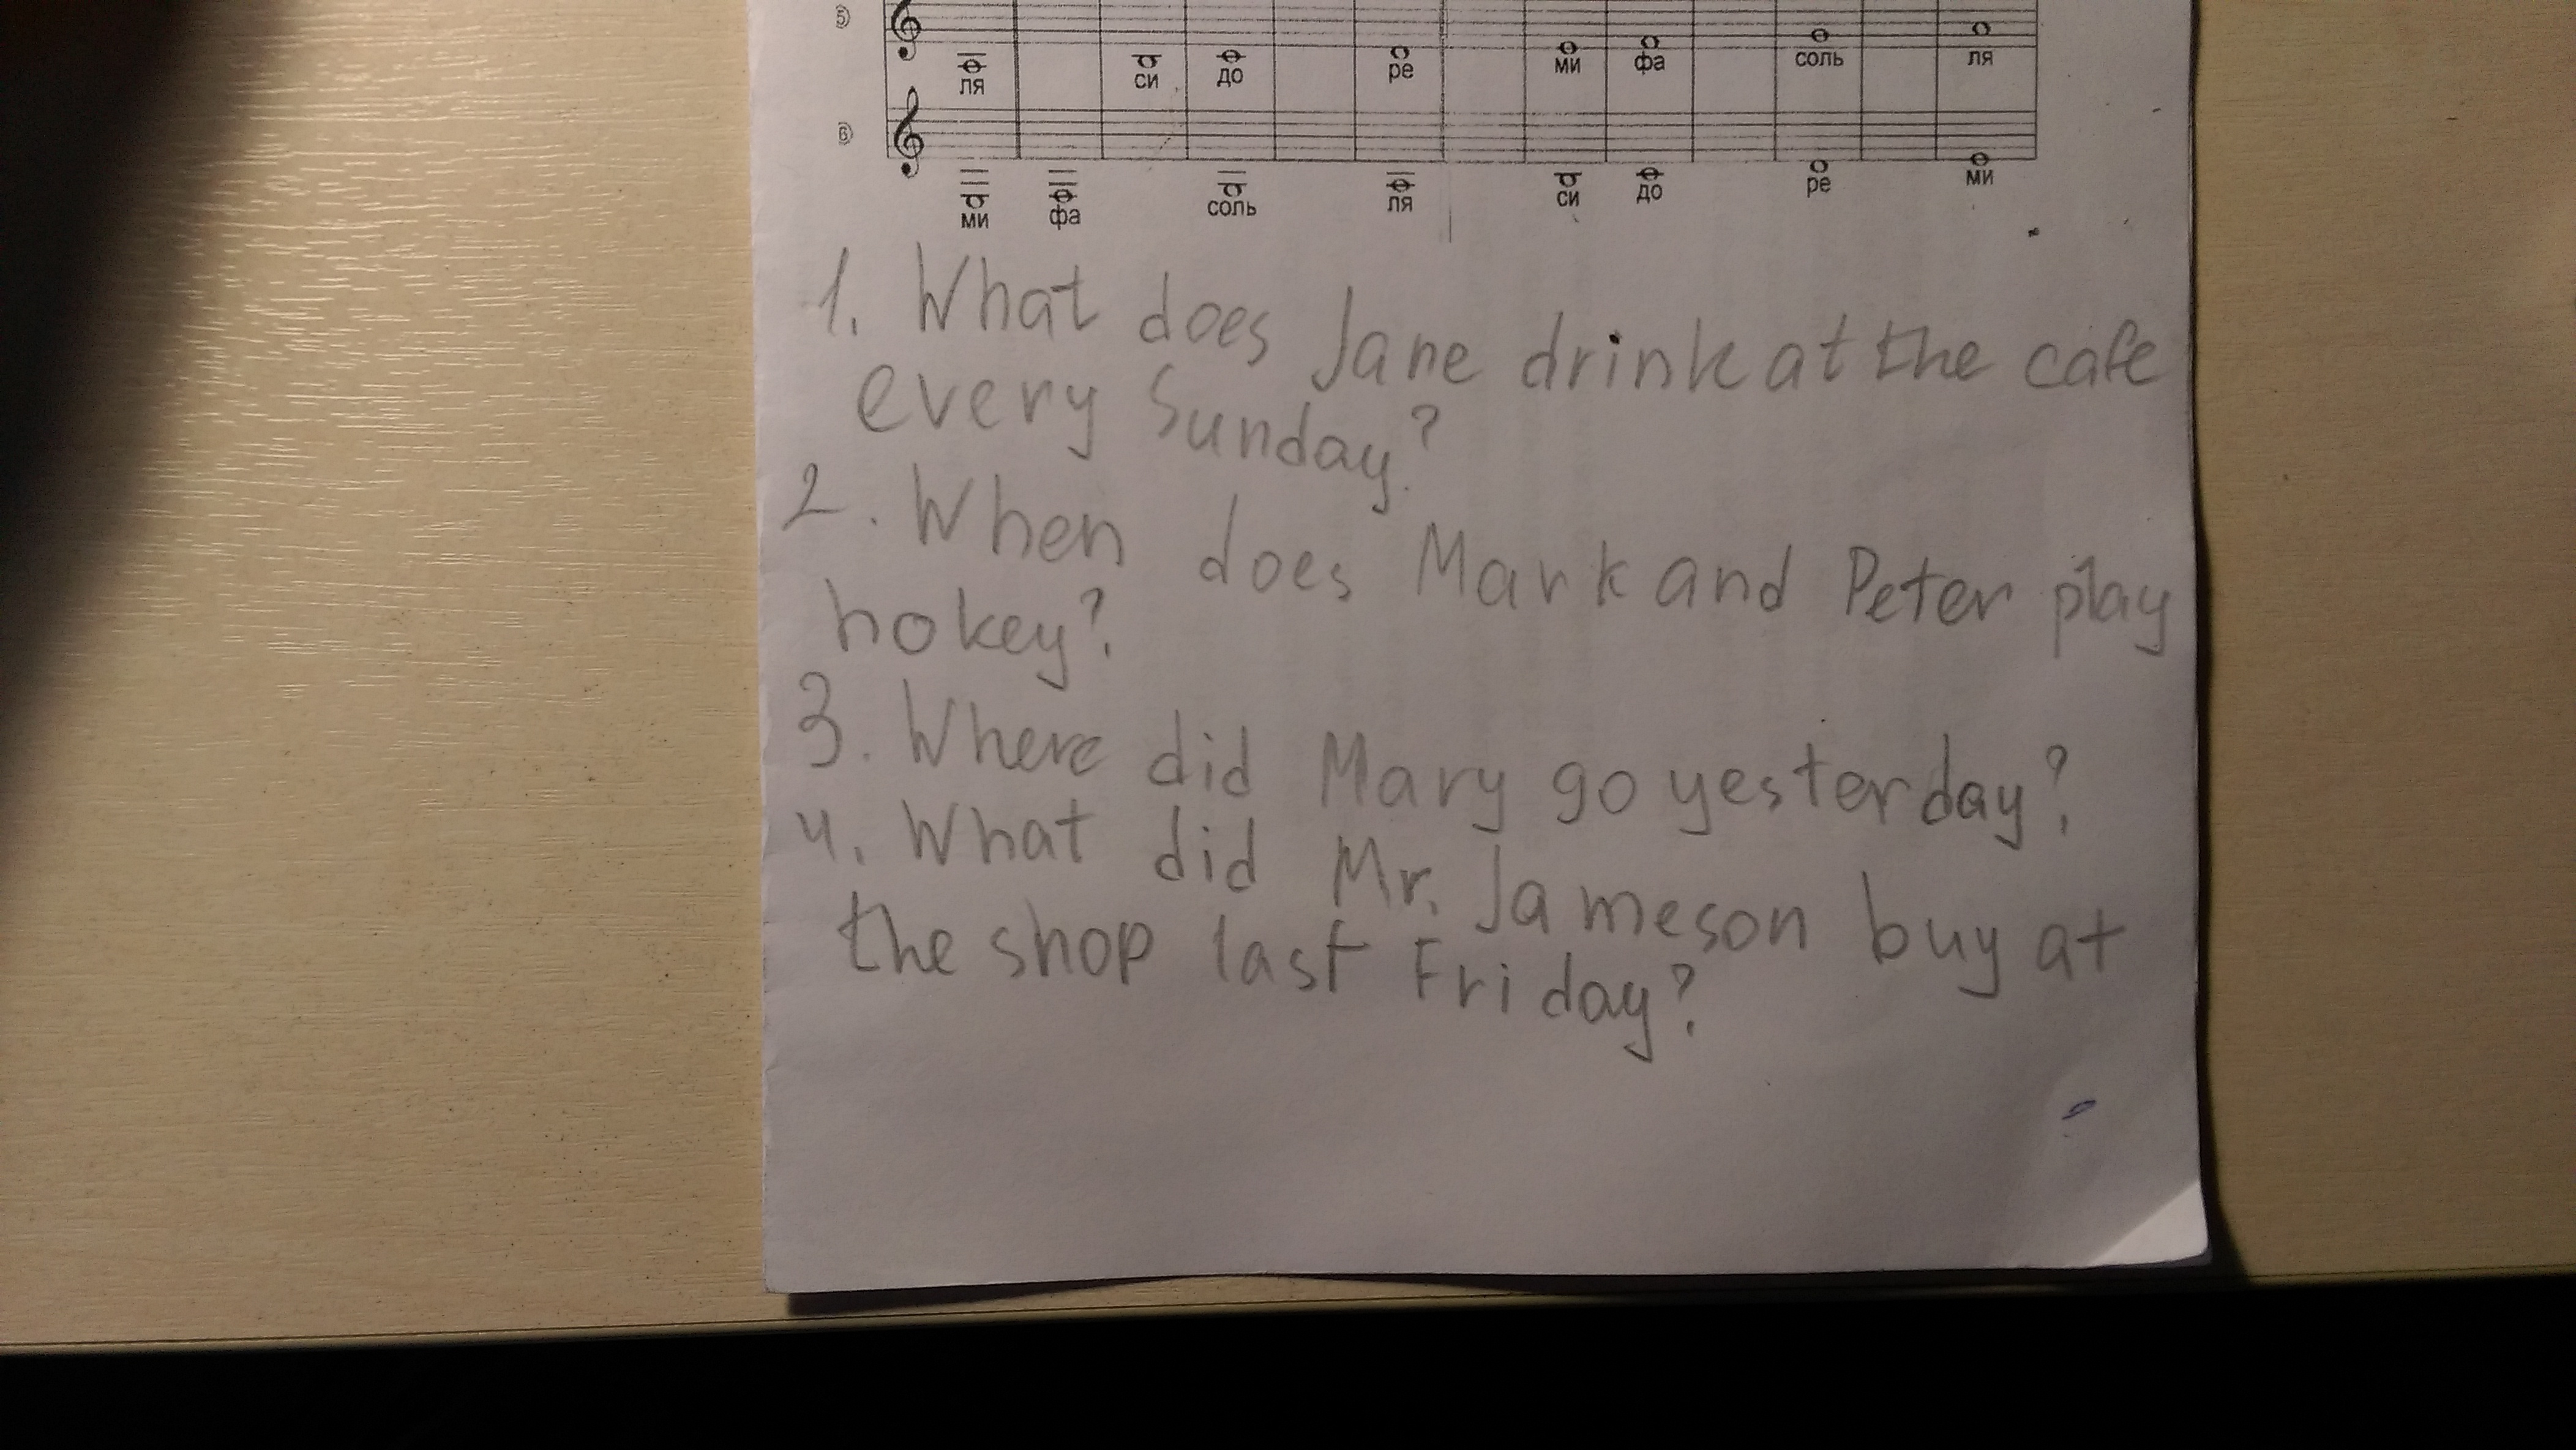 5
ля си до ре ми фа соль ля
6
ми фа соль ля си до ре ми
1. What does Jane drink at the cafe
every Sunday?
2. When does Mark and Peter play
hokey?
3. Where did Mary go yesterday?
4. What did Mr. Jameson buy at
the shop last Friday?